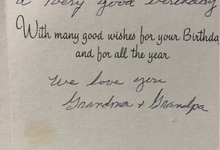 a very good birthday
With many good wishes for your Birthda
and for all the year
We love you
Grandma + Grandpa